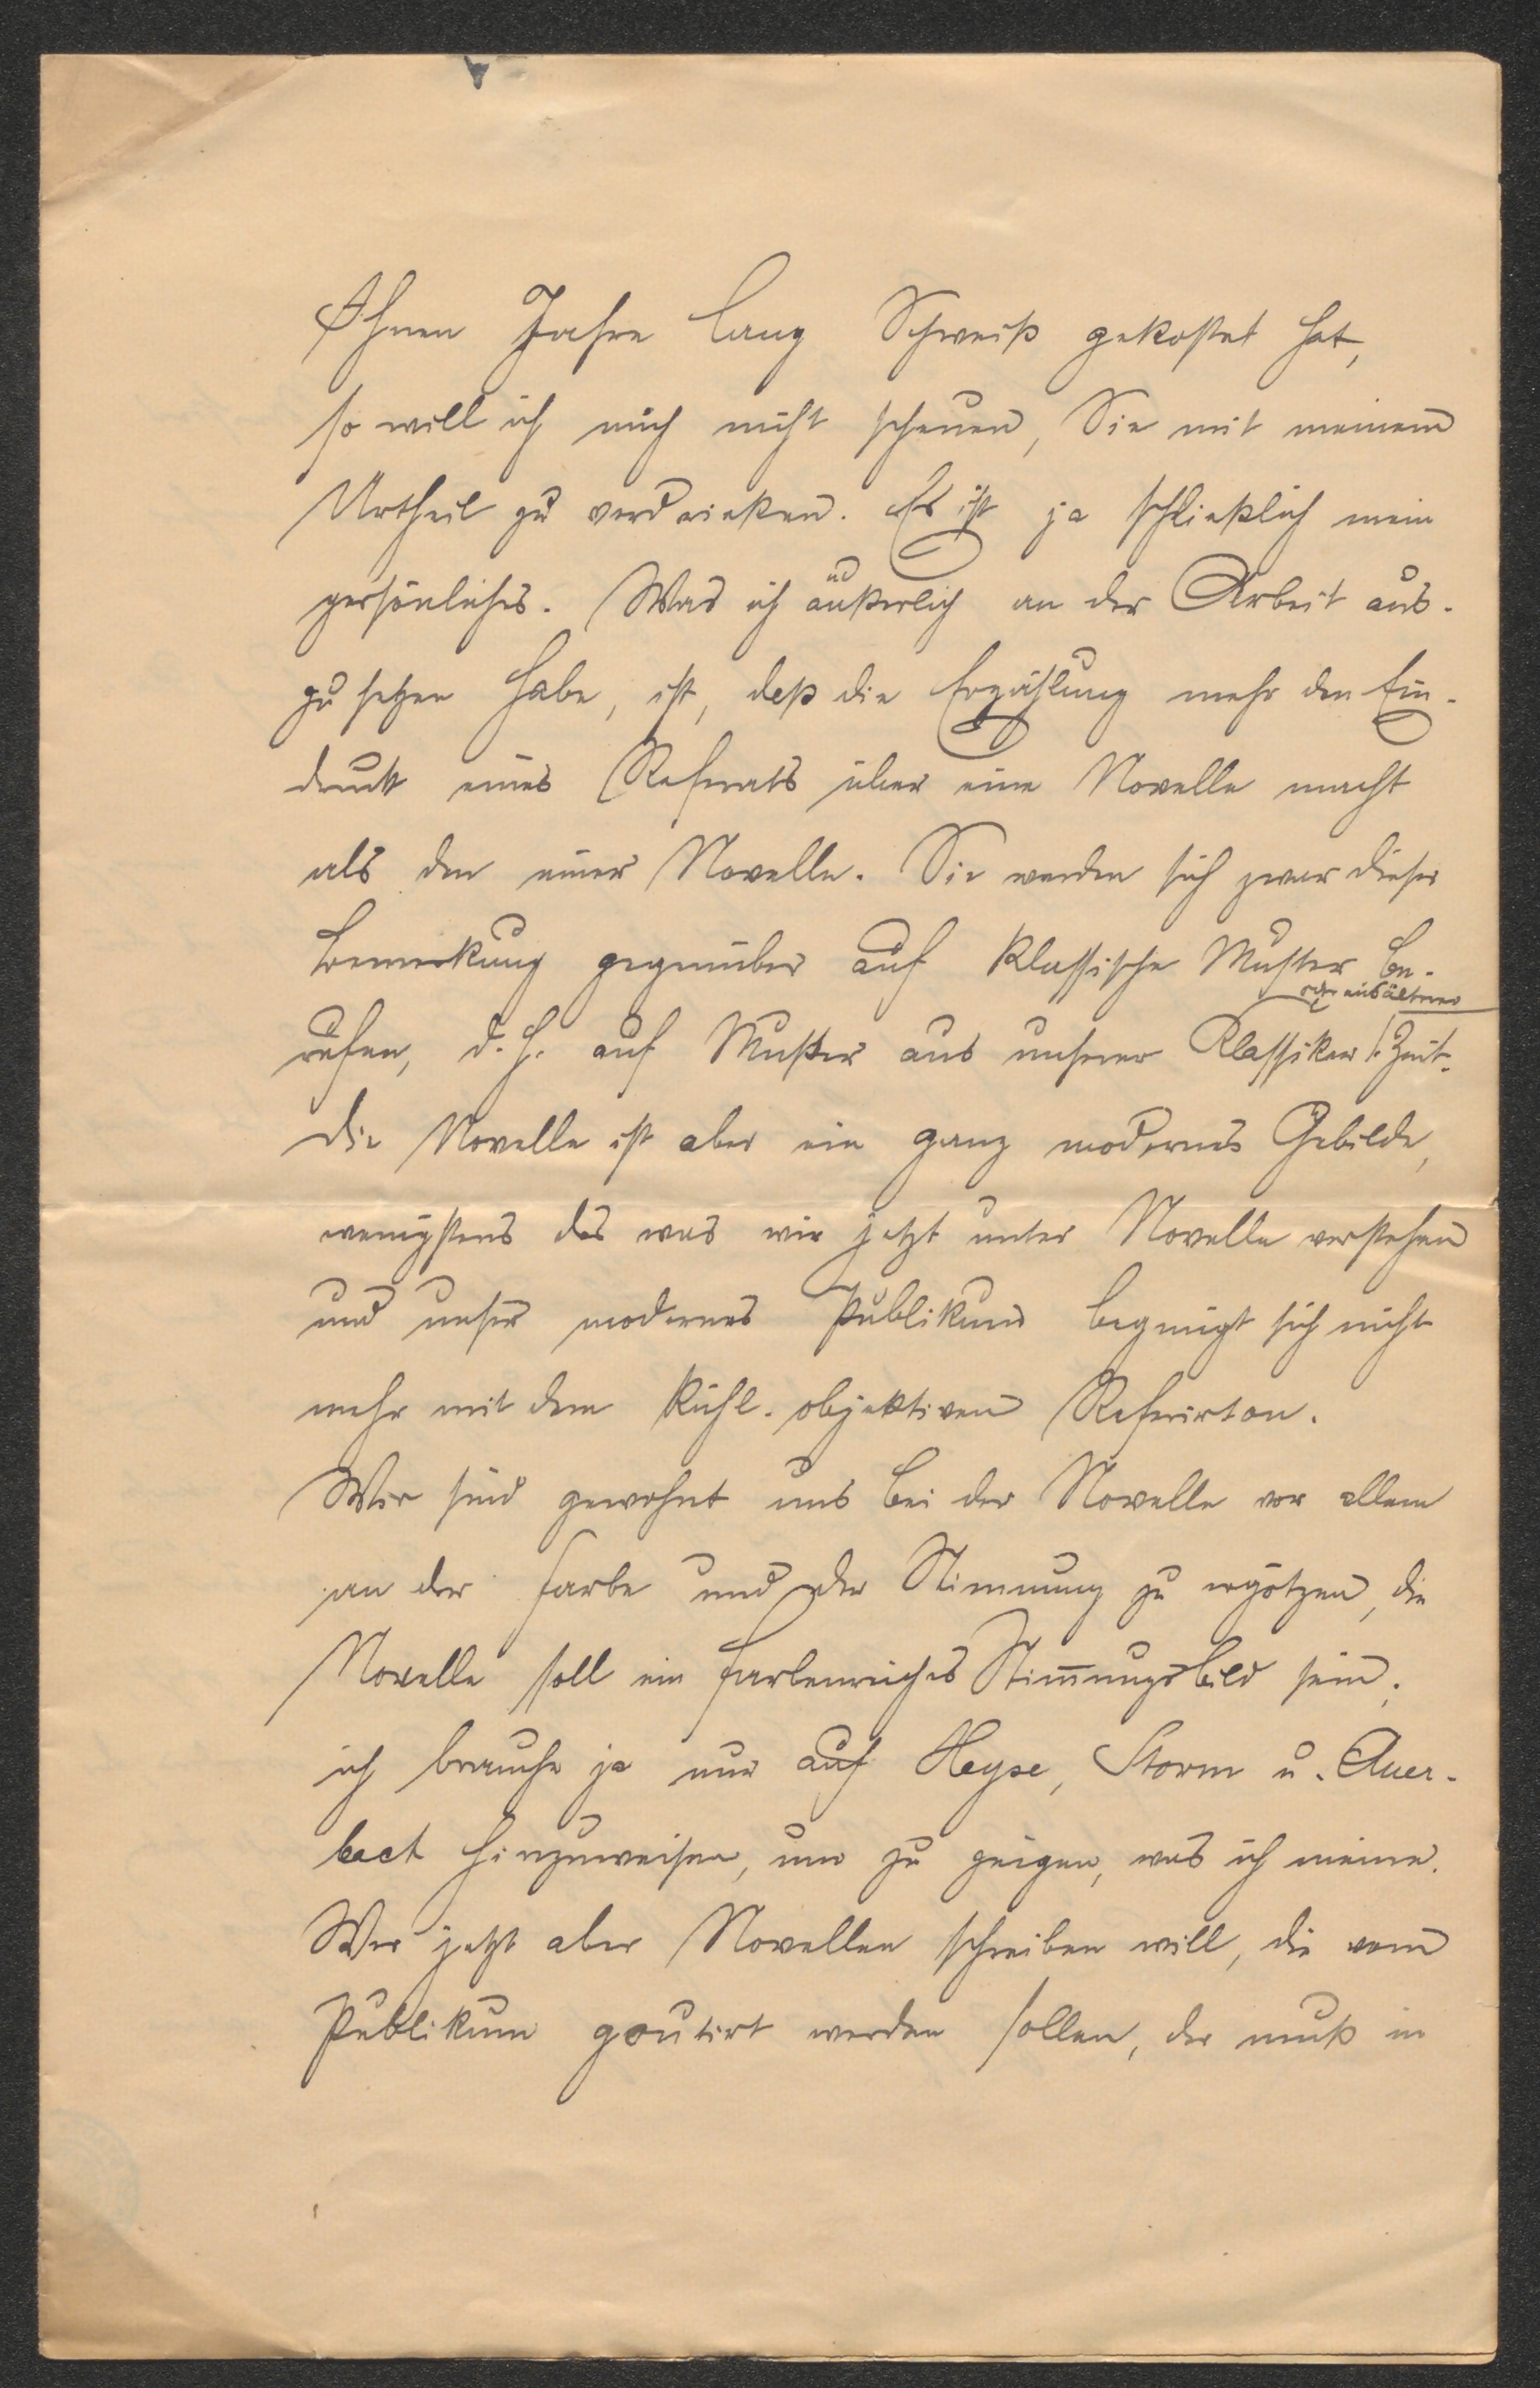 Ihnen Jahre lang Schweiß gekostet hat,
so will ich mich nicht scheuen, Sie mit meinem
Urtheil zu verdrießen. Es ist ja schließlich mein
persönliches. Was ich äußerlich an der Arbeit aus-
zusetzen habe, ist, daß die Erzählung mehr den Ein-
druck eines Referats über eine Novelle macht
als den einer Novelle. Sie werden sich zwar dieser
Bemerkung gegenüber auf klassische Muster be-
oder aus älterer
rufen, d. h. auf Muster aus unserer Klassiker Zeit.
Die Novelle ist aber ein ganz modernes Gebilde,
wenigstens das was wir jetzt unter Novelle verstehen
und unser modernes Publikum begnügt sich nicht
mehr mit dem kühl-objektiven Referirton.
Wir sind gewohnt uns bei der Novelle vor allem
an der Farbe und der Stimmung zu ergötzen, die
Novelle soll ein farbenreiches Stim̅ungsbild sein;
ich brauche ja nur auf Heyse, Storm u. Auer-
bach hinzuweisen, um zu zeigen, was ich meine.
Wer jetzt aber Novellen schreiben will, die vom
Publikum goutirt werden sollen, der muß in